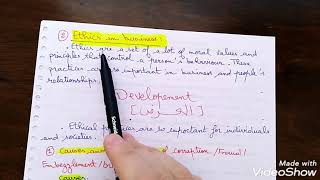 ② Ethics in business:
• Ethics are a set of a lot of moral values and
principles that control a person's behaviour. These
practices are so important in business and people's
relationships.
Developement
Ethical practices are so important for individuals
and societies.
① Causes of corruption / Fraud /
Embezzlement /
Causes
Made with
VideoShow